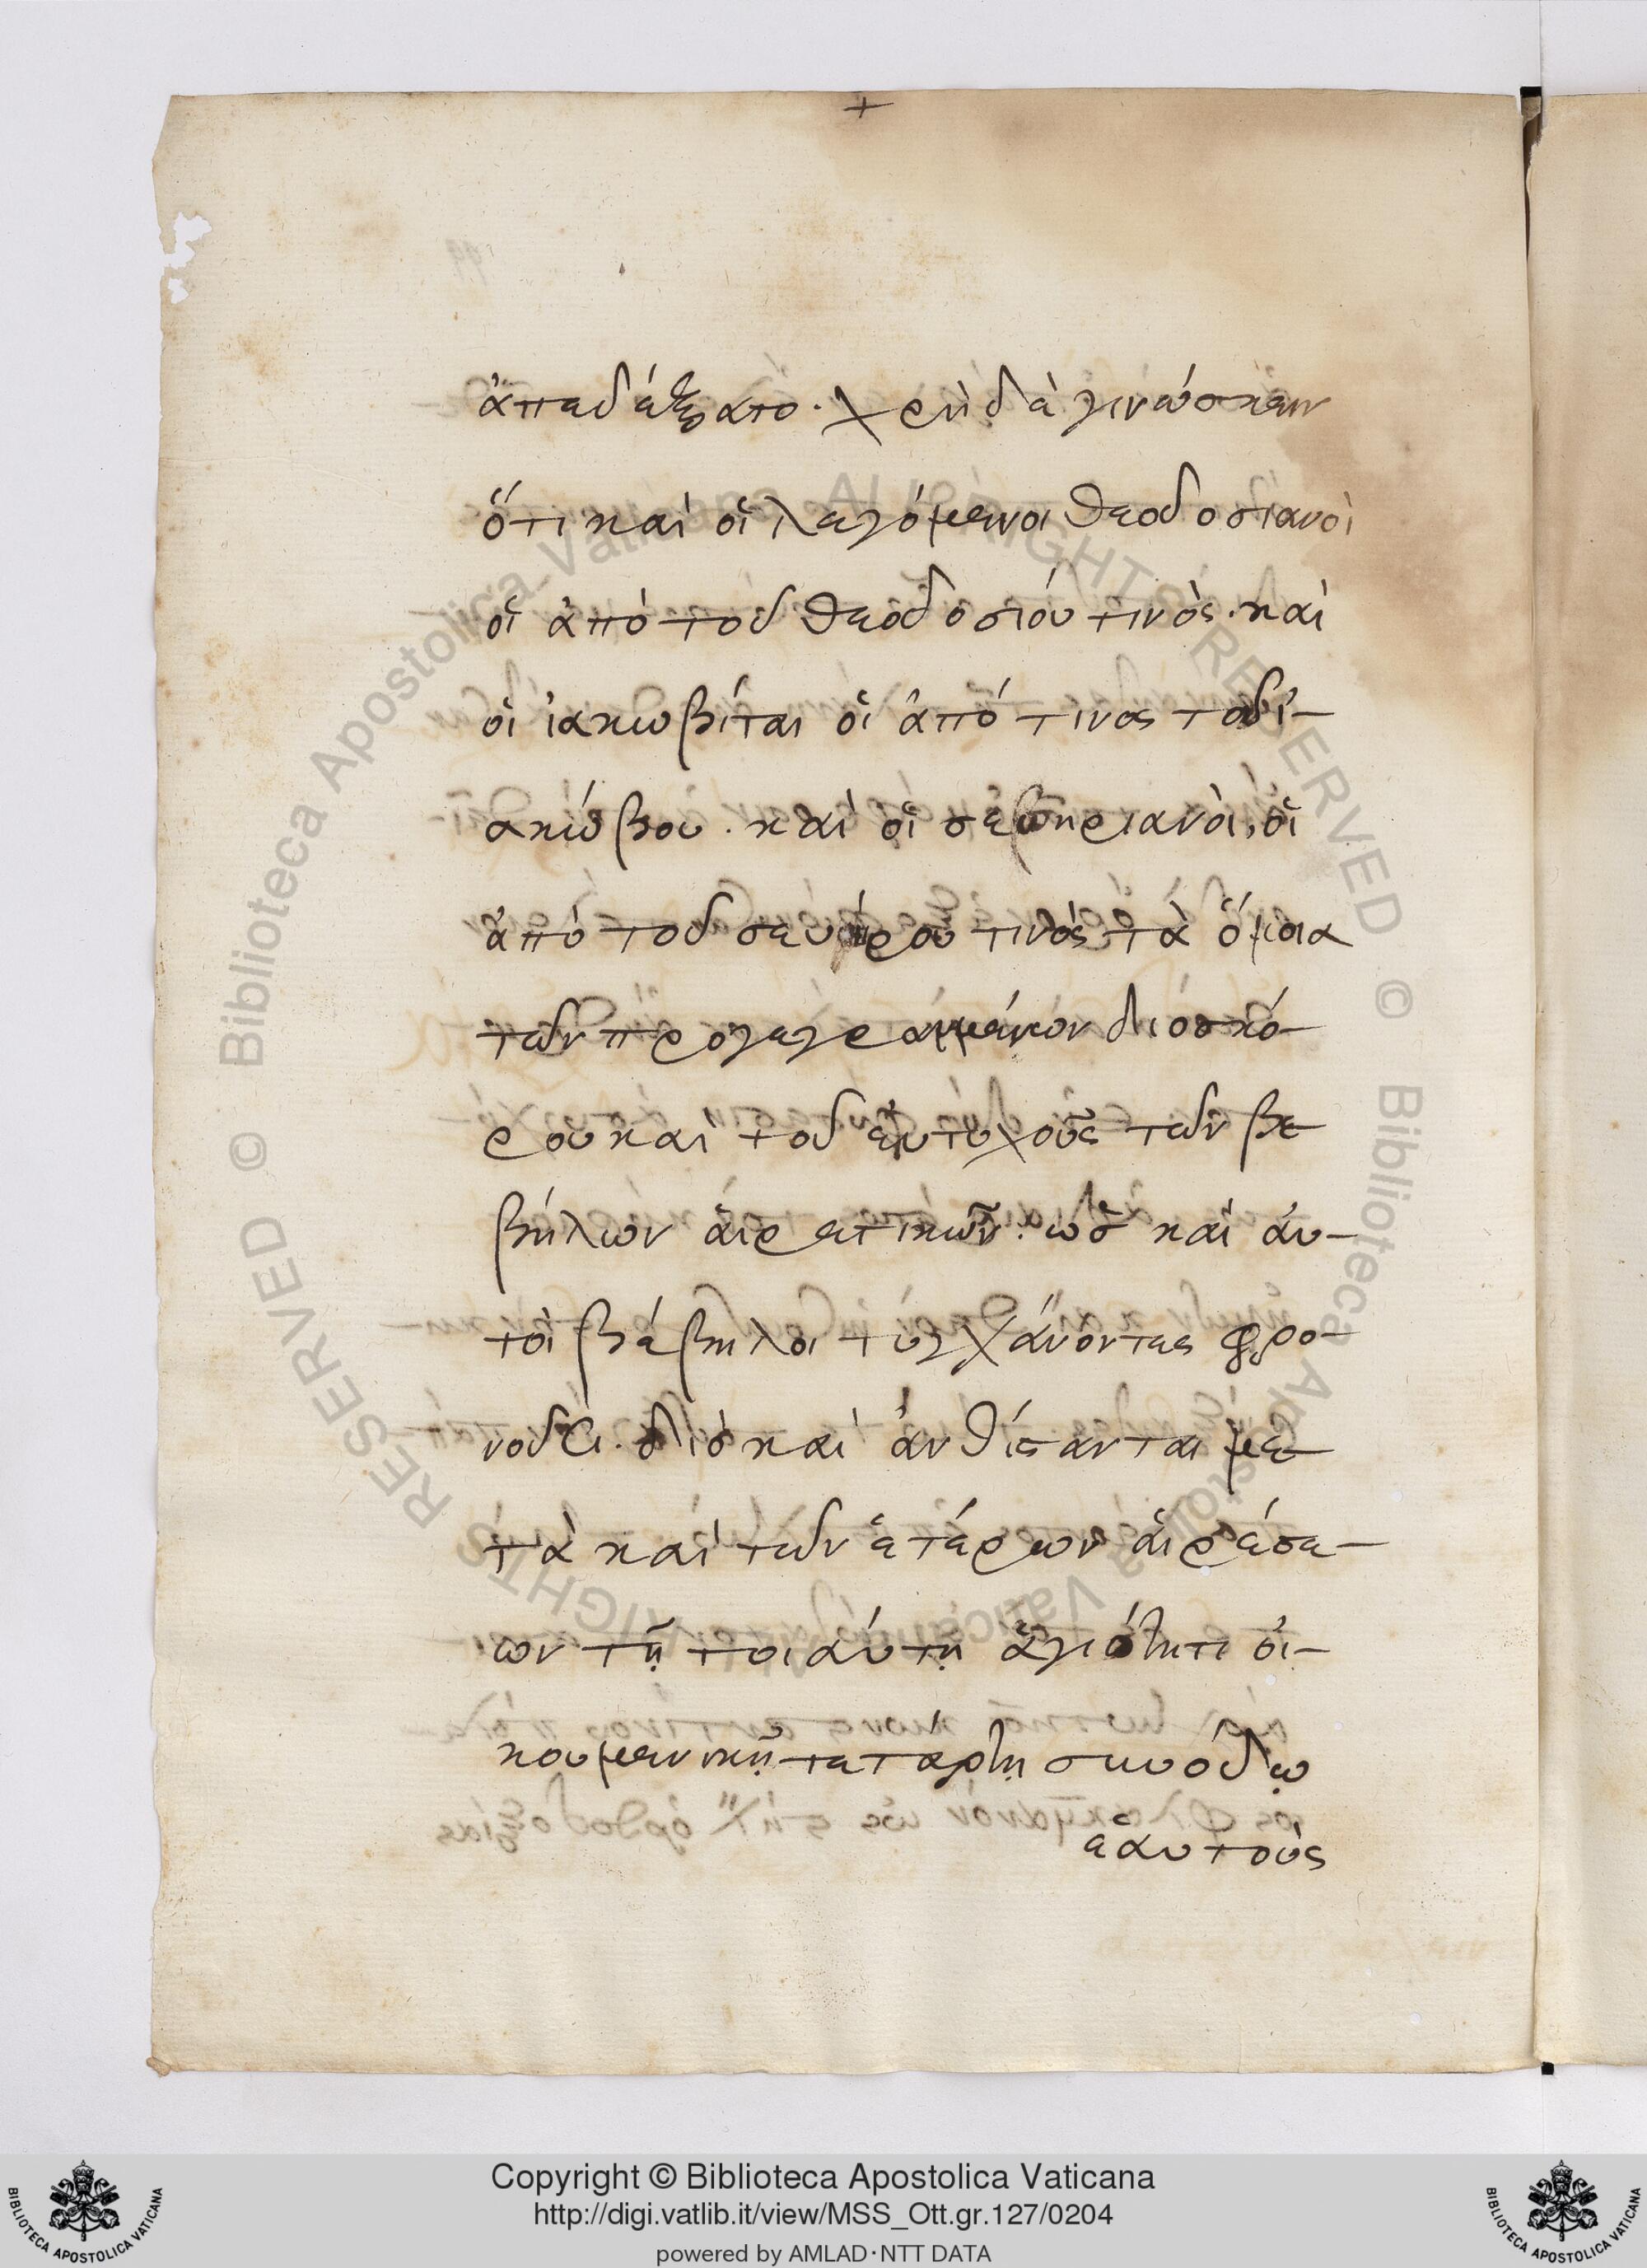 +
ἀπεδέξατο· χρὴ δὲ γινώσκειν
ὅτι καὶ οἱ λεγόμενοι θεοδοσιανοὶ
οἱ ἀπὸ τοῦ θεοδοσίου τινὸς· καὶ
οἱ ἰακωβίται οἱ ἀπό τινος τοῦ ἰ-
ακώβου· καὶ οἱ σεβηριανοὶ, οἱ
ἀπὸ τοῦ σευήρου τινὸς τὰ ὅμοια
τῶν προγεγραμμένων διοσκό-
ρου καὶ τοῦ ἐυτυχοῦς τῶν βε-
βήλων ἁιρετικῶν· ὡς καὶ ἀυ-
τοὶ βέβηλοι τυγχάνοντες φρο-
νοῦσι· διὸ καὶ ἀνθίστανται με-
τὰ καὶ τῶν ἑτέρων ἁιρέσε-
ων τῇ τοιάυτῃ ἁγιότητι ὀι-
κουμενικῇ τετάρτῃ συνόδῳ
ἑαυτοὺς
Copyright © Biblioteca Apostolica Vaticana
http://digi.vatlib.it/view/MSS_Ott.gr.127/0204
powered by AMLAD·NTT DATA
BIBLIOTECA APOSTOLICA VATICANA
BIBLIOTECA APOSTOLICA VATICANA
© Biblioteca Apostolica Vaticana ALL RIGHTS RESERVED © Biblioteca Apostolica Vaticana ALL RIGHTS RESERVED